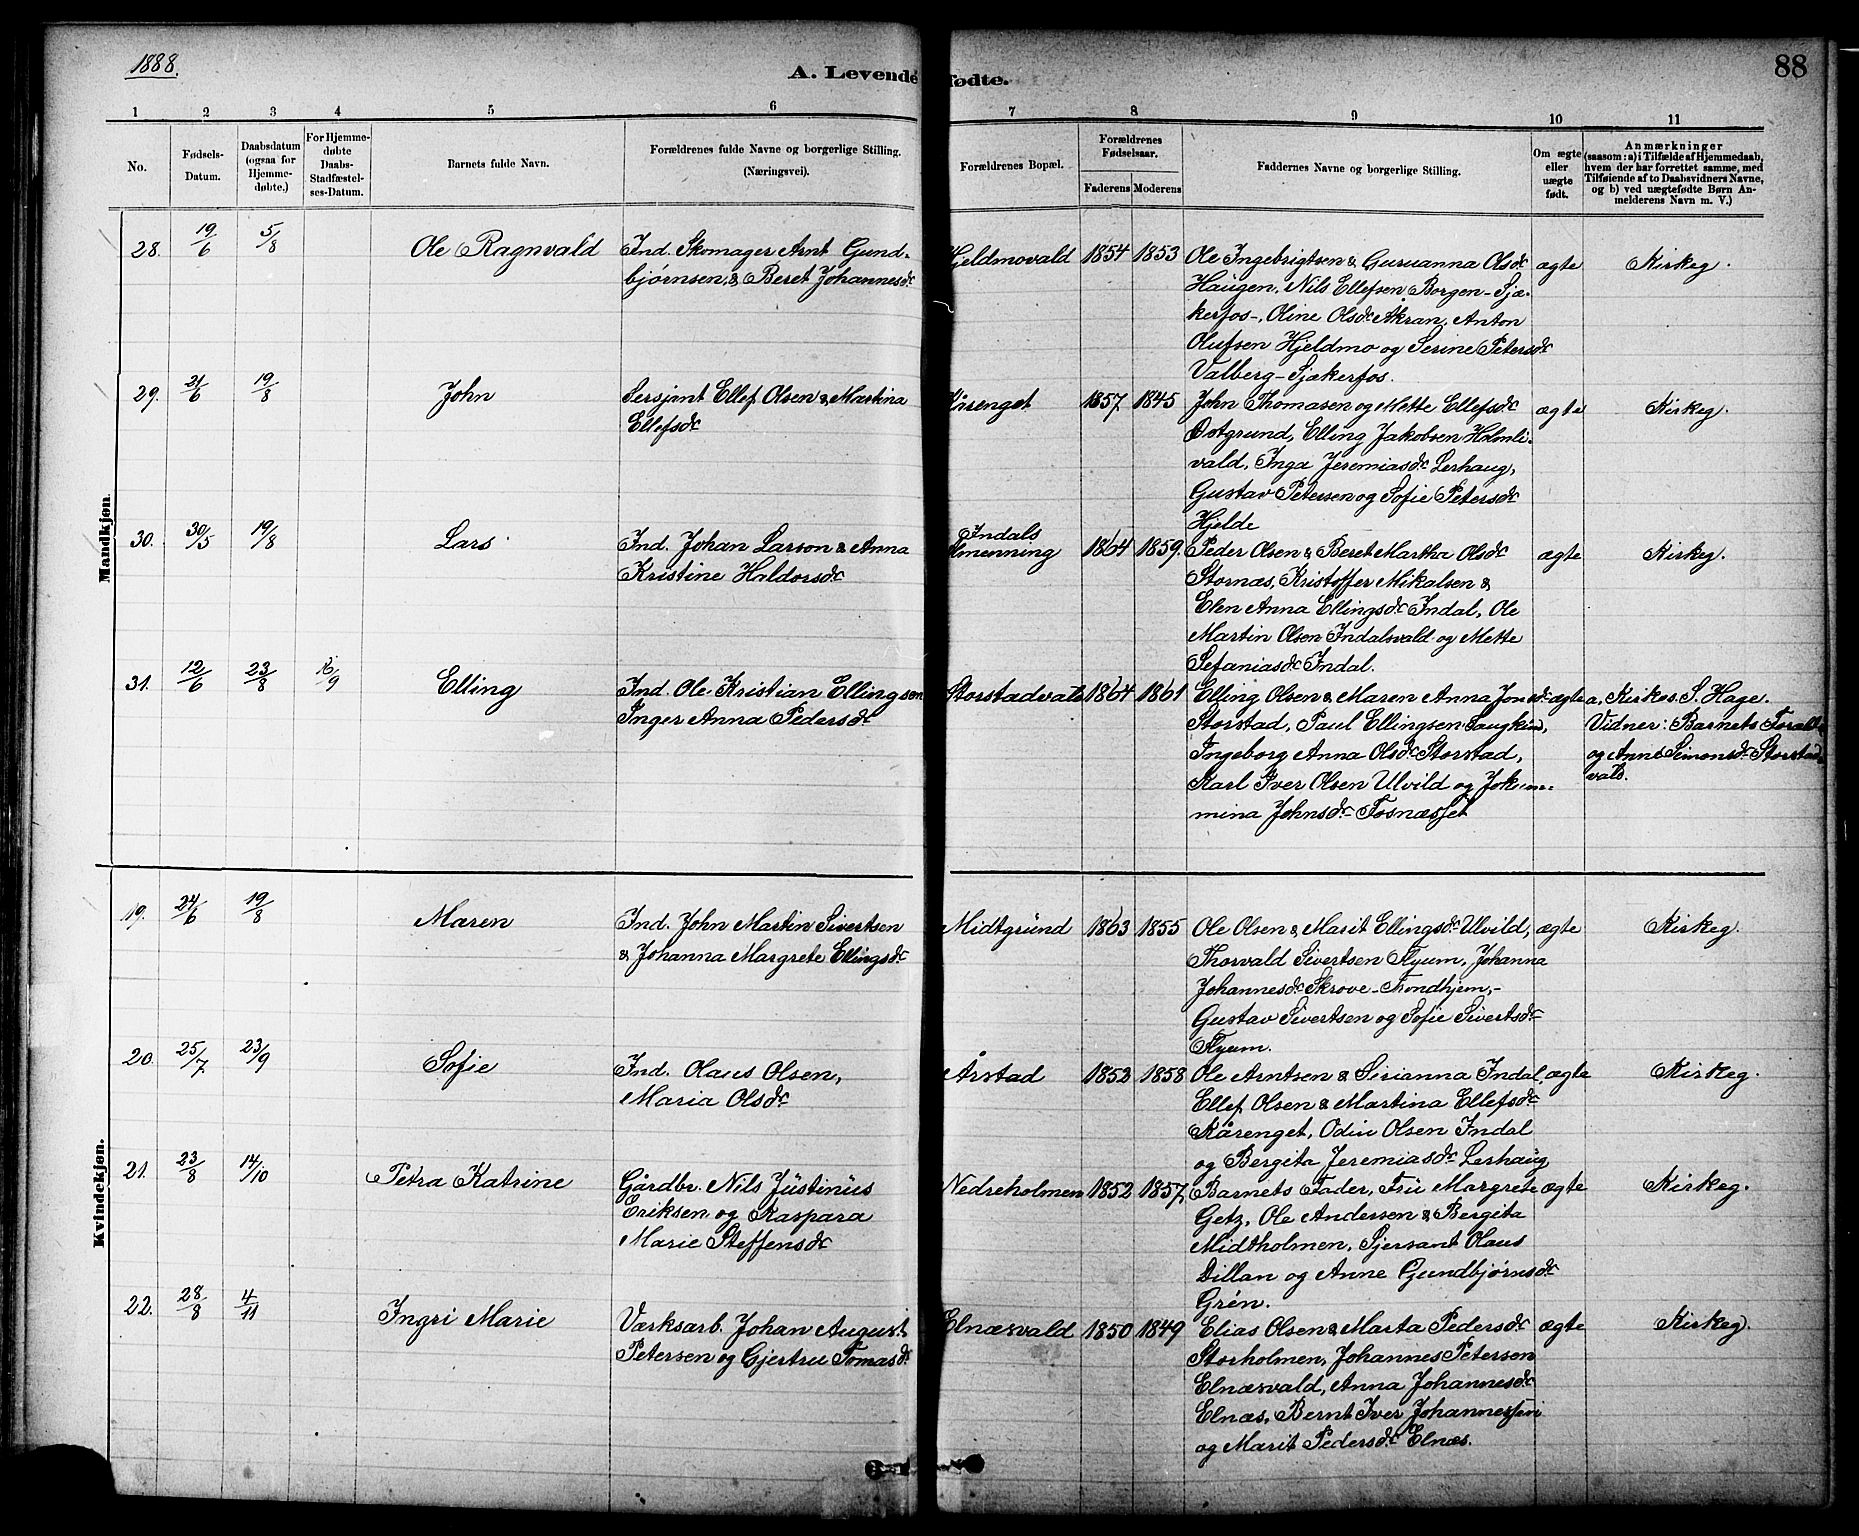 1888.
A. Levende Fødte.
88
1 2 3 4 5 6 7 8 9 10 11
No.
Fødsels-
Datum.
Daabsdatum
(ogsaa for
Hjemme-
døbte,)
For Hjemme-
døbte
Daabs-
Stadfæstel-
ses-Datum.
Barnets fulde Navn.
Forældrenes fulde Navne og borgerlige Stilling.
(Næringsvei).
Forældrenes Bopæl.
Forældrenes
Fødselsaar.
Faderens Moderens
Faddernes Navne og borgerlige Stilling.
Om ægte
eller
uægte
født.
Anmærkninger
(saasom: a) i Tilfælde af Hjemmedaab,
hvem der har forrettet samme, med
Tilføiende af to Daabsvidners Navne,
og b) ved uægtefødte Børn An-
melderens Navn m. V.)
Mandkjøn.
28. 19/6 5/8 Ole Ragnvald
Ind. Skomager Arnt Gund-
bjørnsen, & Beret Johannesdr
Hjeldmovald 1854 1853
Ole Ingebrigtsen & Guruanna Olsdr
Haugen, Nils Ellefsen Borgen-Sjæ-
kerfos-, Oline Olsdr Åkran, Anton
Olufsen Hjeldmo og Serine Petersdr
Valberg-Sjækerfos.
ægte Kirkeg.
29. 21/6 19/8 John
Sersjant Ellef Olsen & Martina
Ellefsdr
Kårenget 1857 1845
John Thomasen og Mette Ellefsdr
Østgrund, Elling Jakobsen Holmli-
vald, Inga Jeremiasdr Lerhaug,
Gustav Petersen og Sofie Petersdr
Hjelde
ægte Kirkeg.
30. 30/5 19/8 Lars
Ind. Johan Larson & Anna
Kristine Haldorsdr
Indals
Almenning 1864 1859.
Peder Olsen & Beret Martha Olsdr
Stornæs, Kristoffer Mikalsen &
Elen Anna Ellingsdr Indal, Ole
Martin Olsen Indalsvald og Mette
Sefaniasdr Indal.
ægte Kirkeg.
31. 12/6 23/8 16/9 Elling
Ind. Ole Kristian Ellingsen
Inger Anna Pedersdr
Storstadvald 1864 1861
Elling Olsen & Maren Anna Jonsdr
Storstad, Paul Ellingsen
Ingeborg Anna Olsdr Storstad,
Karl Iver Olsen Ulvild og Jokum-
mina Johnsdr Fosnæsset
ægte
a, Kirkes. S. Hage.
Vidner: Barnets Foræld
og Anne Simonsdr Storstad
vald.
Kvindekjøn.
19. 24/6 19/8 Maren
Ind. John Martin Sivertsen
& Johanna Margrete Ellingsdr
Midtgrund 1863 1855
Ole Olsen & Marit Ellingsdr Ulvild,
Thorvald Sivertsen Flyum, Johanna
Johannesdr Skrove-Trondhjem,-
Gustav Sivertsen og Sofie Sivertsdr
Flyum.
ægte Kirkeg.
20. 25/7 23/9 Sofie
Ind. Olaus Olsen,
Maria Olsdr
Årstad 1852 1858
Ole Arntsen & Sirianna Indal,
Ellef Olsen & Martina Ellefsdr
Kårenget, Odin Olsen Indal
og Bergita Jeremiasdr Lerhaug
ægte Kirkeg.
21. 23/8 14/10 Petra Katrine
Gårdbr. Nils Justinus
Eriksen og Kaspara
Marie Steffensdr
Nedreholmen 1852 1857,
Barnets Fader, Fru Margrete
Getz, Ole Andersen & Bergita
Midtholmen, Sjersant Olaus
Dillan og Anne Gundbjørnsdr
Grén.
ægte Kirkeg.
22. 28/8 4/11 Ingri Marie
Værksarb. Johan August
Petersen og Gjertru Tomasdr
Elnæsvald 1850 1849
Elias Olsen & Marta Pedersdr
Storholmen, Johannes Petersen
Elnæsvald, Anna Johannesdr
Elnæs, Bernt Iver Johannessen
og Marit Pedersdr Elnæs.
ægte Kirkeg.